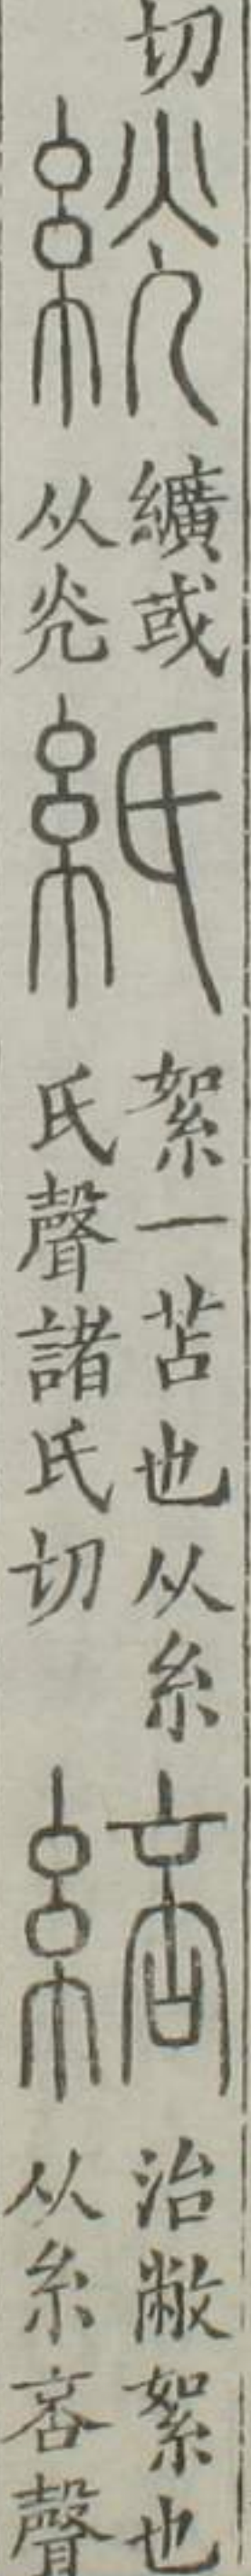 切絖纊或从灮紙絮一苫也从糸氏聲諸氏切䋨治敝絮也从糸咅聲